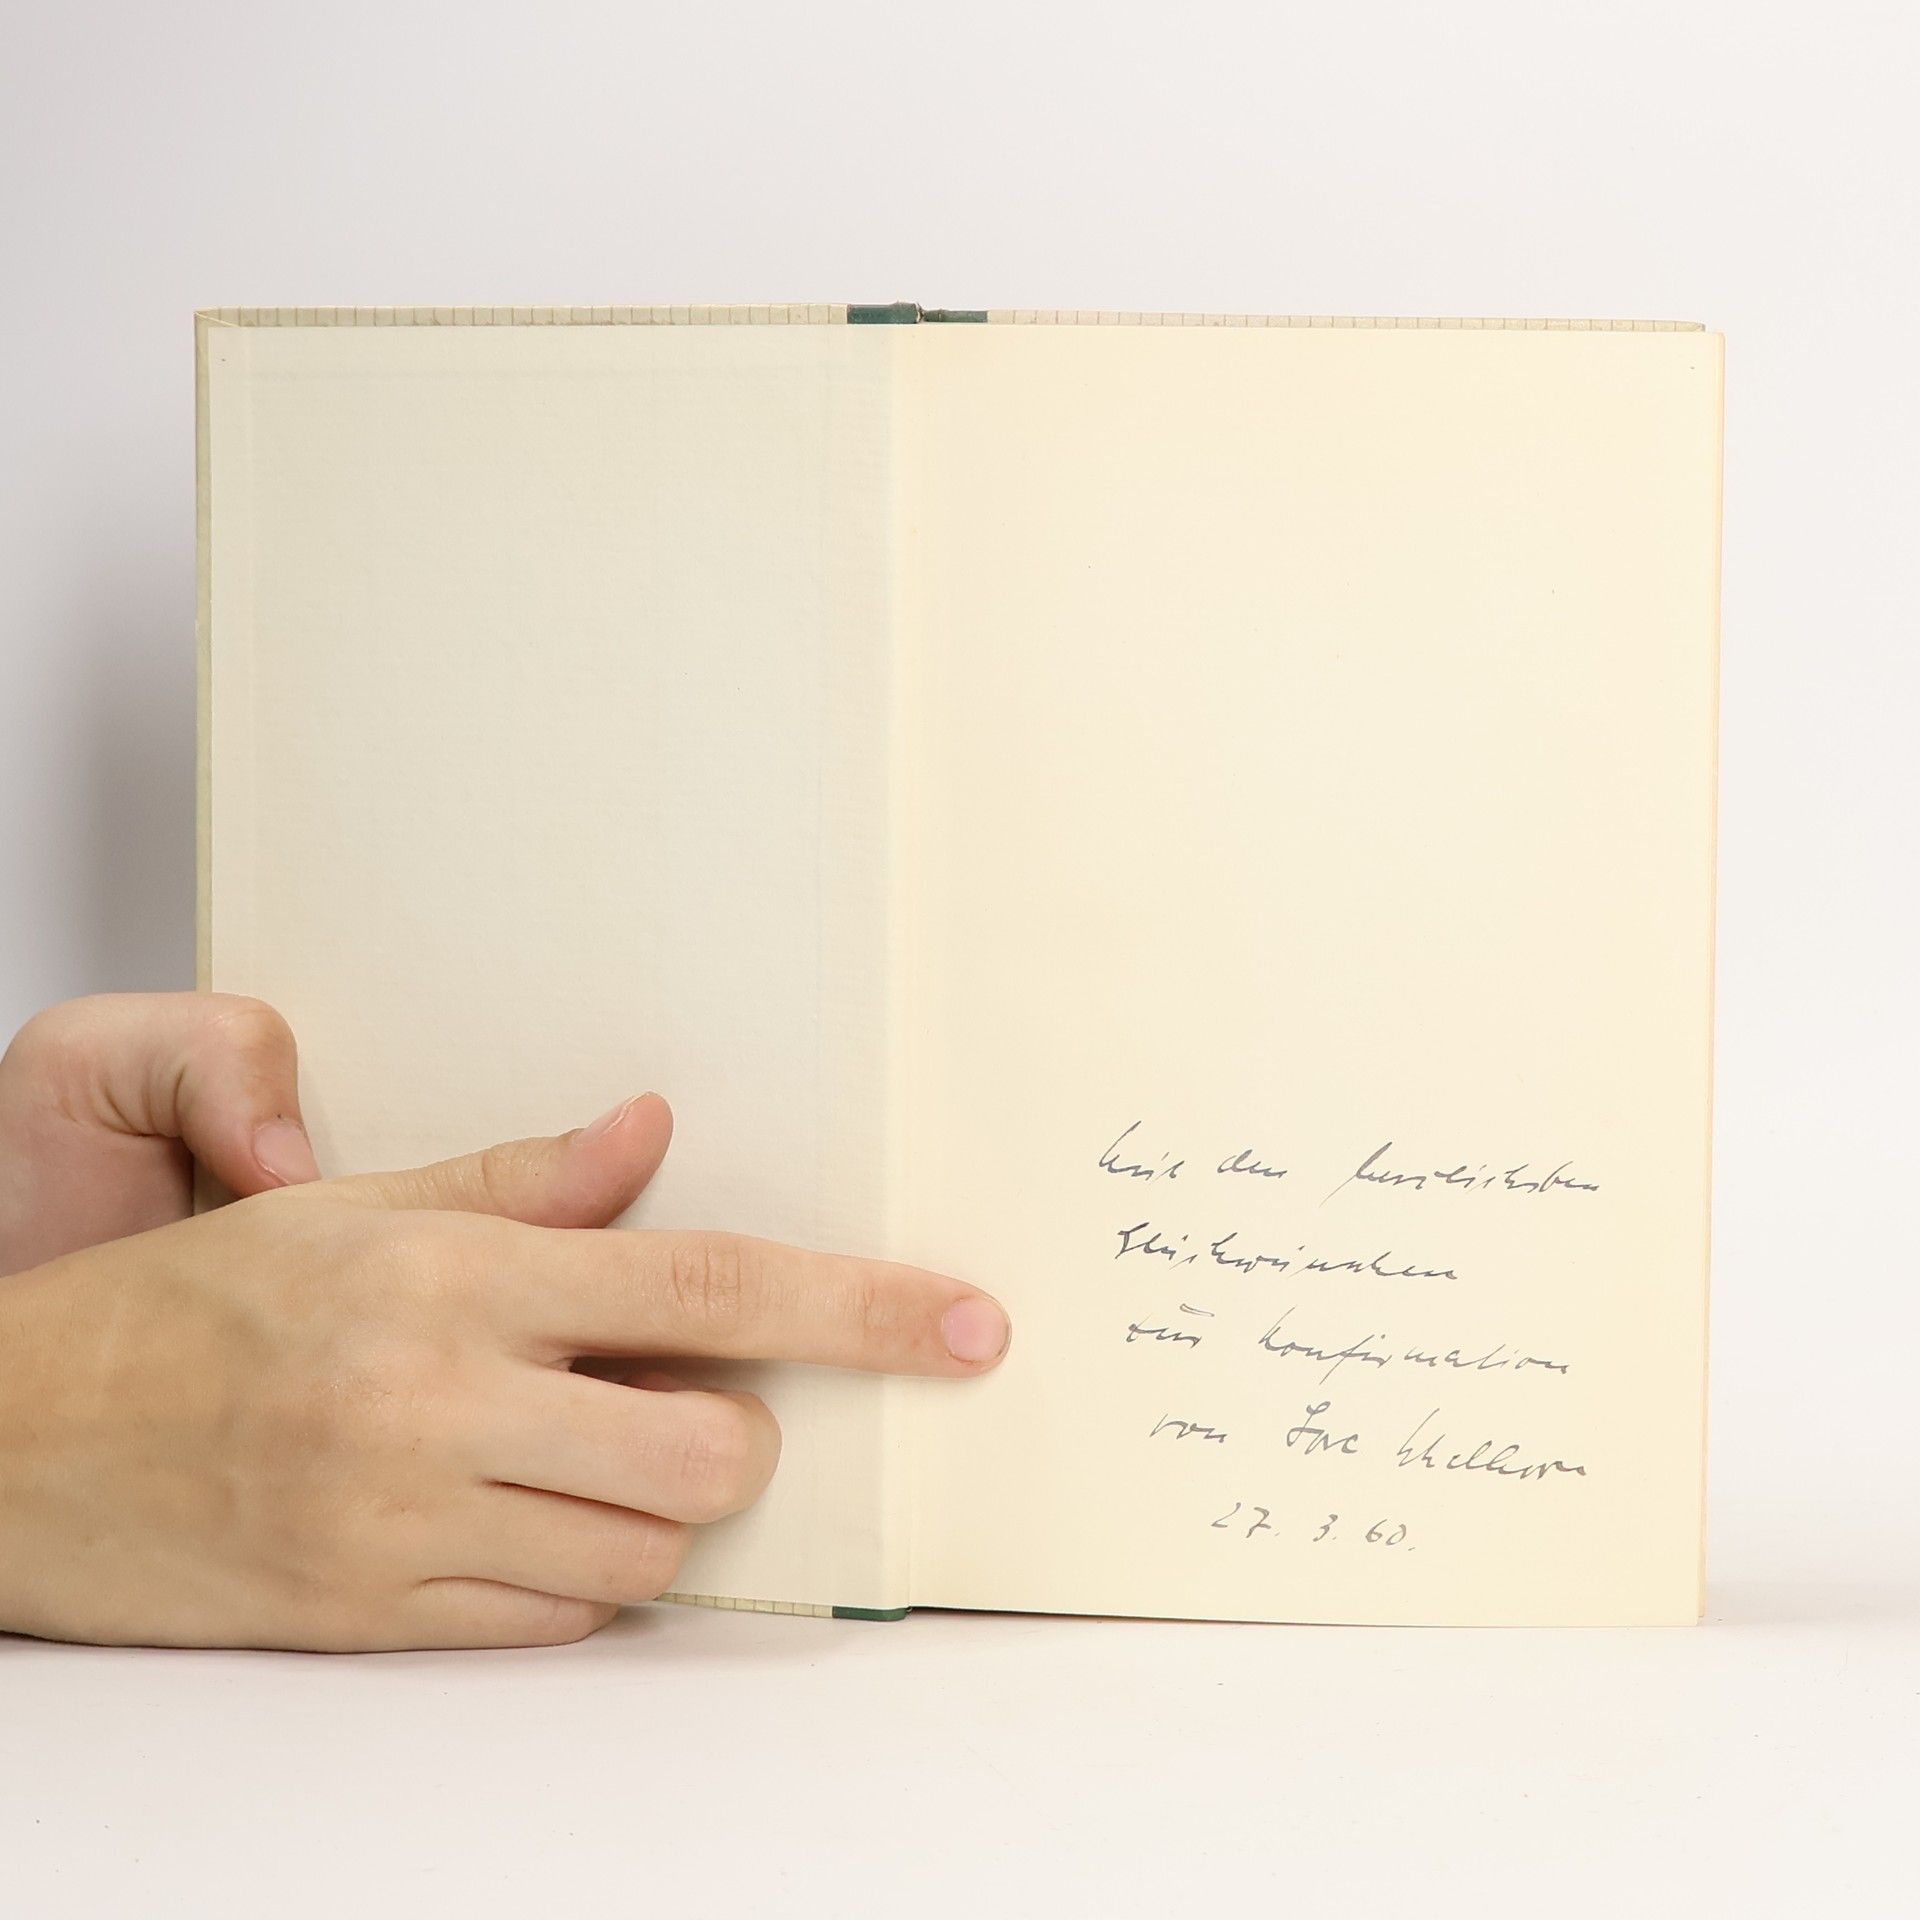 Mit den herzlichsten
Glückwünschen
zur Konfirmation
von
27. 3. 60.